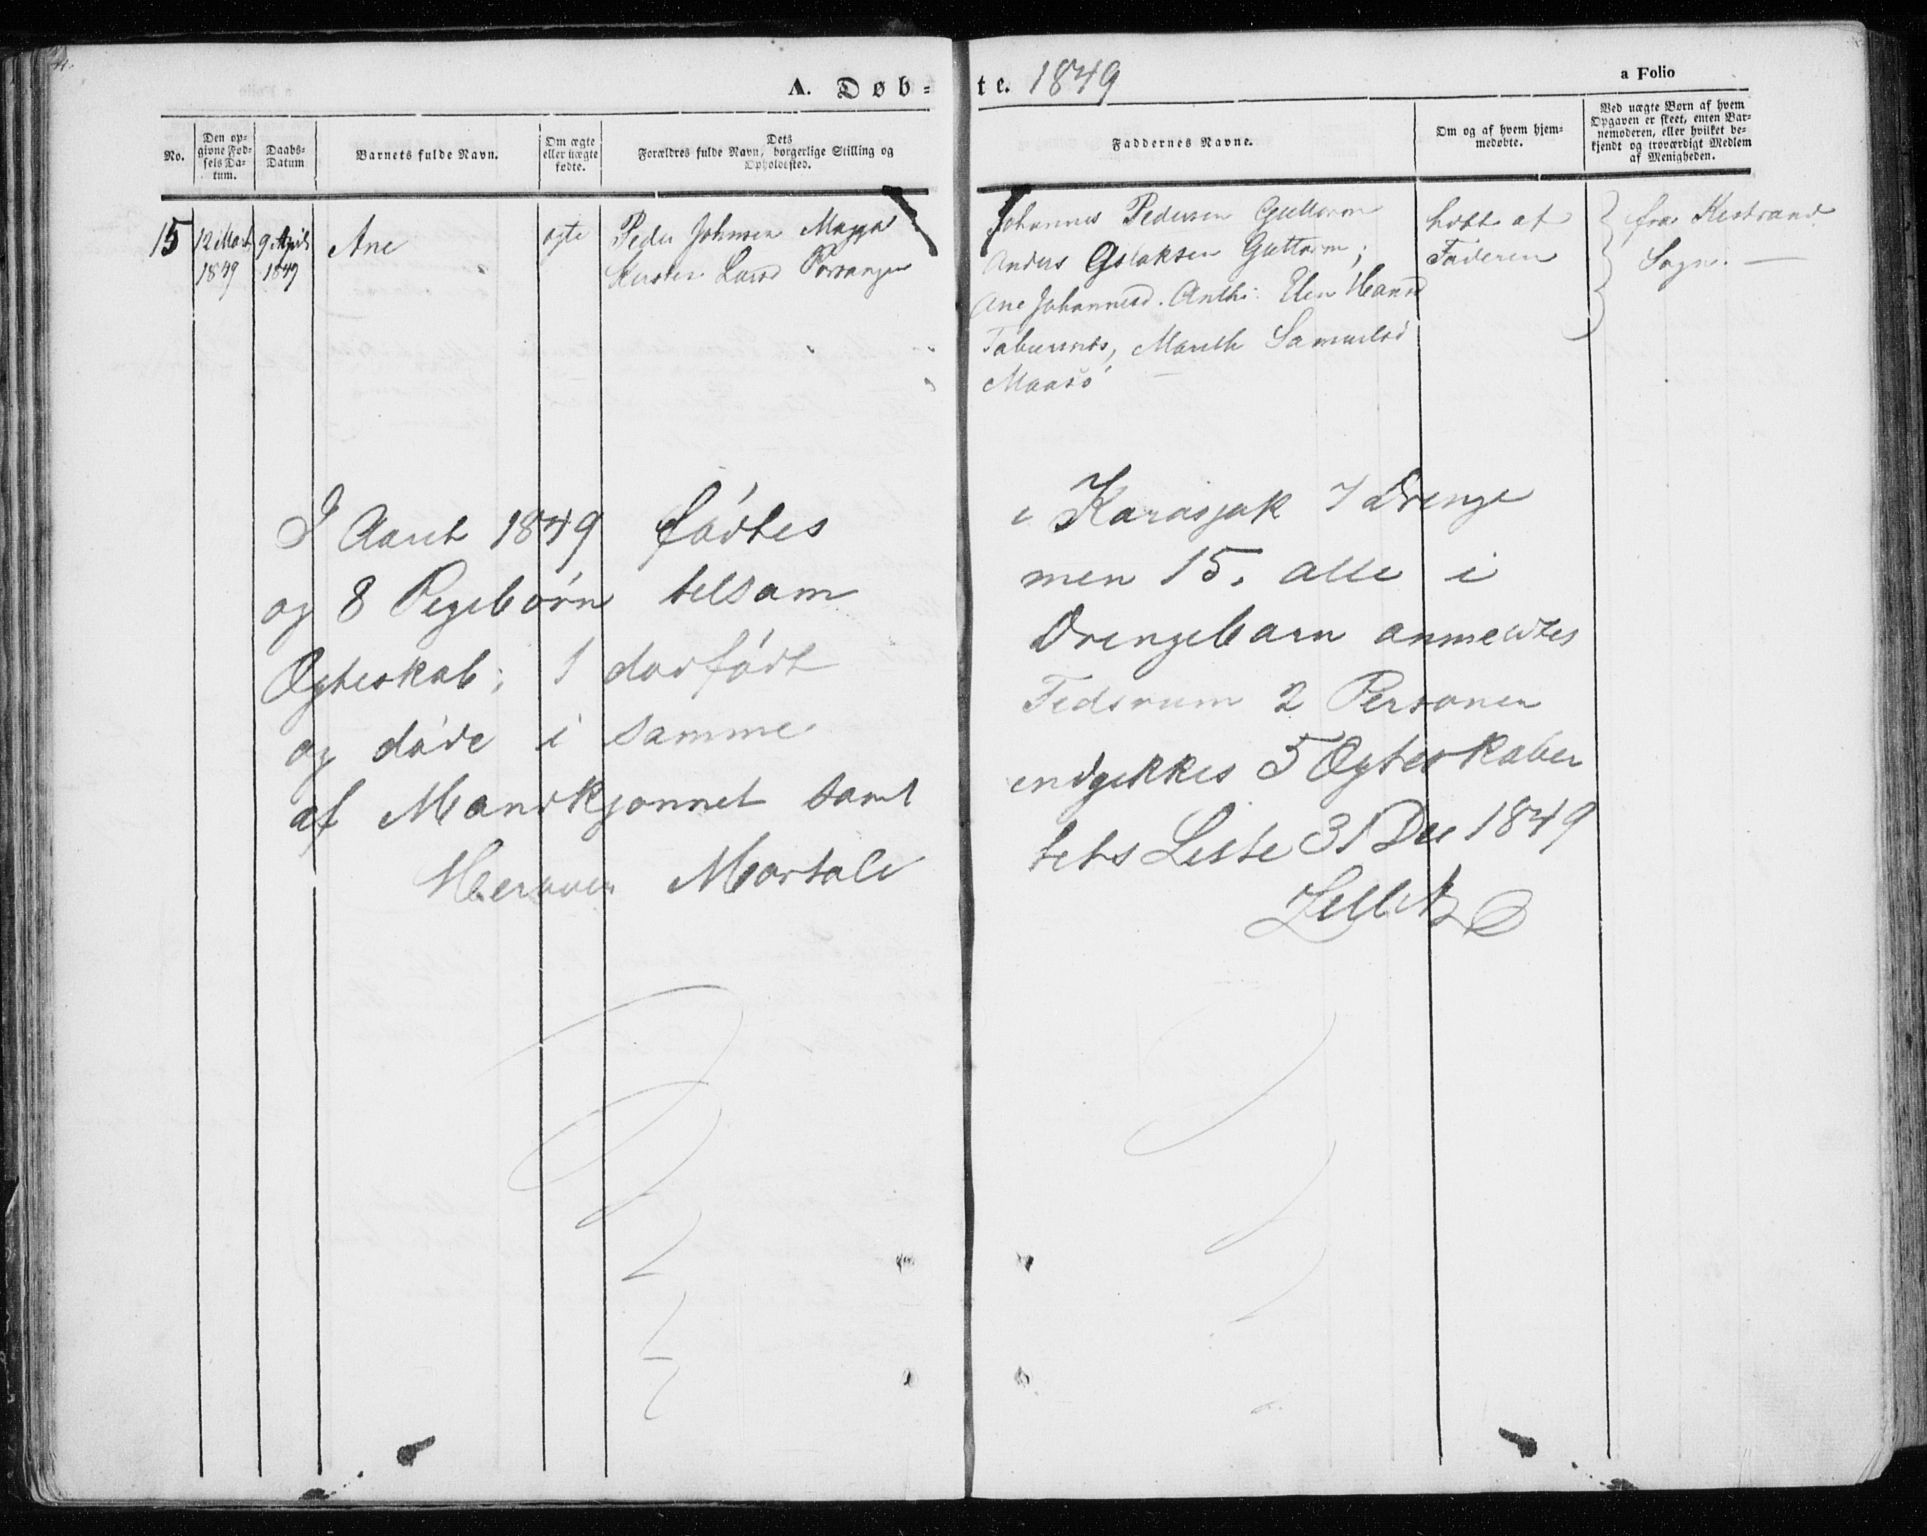 A. Døbte. 1849
a Folio
No.
Den opgivne Fødsels Datum.
Daabs-Datum
Barnets fulde Navn.
Om ægte eller uægte fødte.
Dets Forældres fulde Navn, borgerlige Stilling og Opholdssted.
Faddernes Navne.
Om og af hvem hjemmedøbte.
Ved uægte Børn af hvem Opgaven er skeet, enten Barnemoderen, eller hvilket bekjendt og troværdigt Medlem af Menigheden.
15
12 Mart 1849
9 April 1849
Ane
ægte
Peder Johnsen Magga
Kirsten Larsd Porsanger
Johannes Pedersen Guttorm
Anders Aslaksen Guttorm;
Ane Johannesd. Anthi. Elen Hansd
Marith Samuelsd
Maasö
hdøbt af
Faderen
fra Kistrand
Sogn. —
I Aaret 1849 fødtes i Karasjok 7 Drenge
og 8 Pigebørn tilsam men 15. alle i
Ægteskab; 1 dødfødt Drengebarn anmeldtes
og døde i samme Tidsrum 2 Personer
af Mandkjønnet samt indgikkes 5 Ægteskaber
31 Dec 1849
Zetlitz